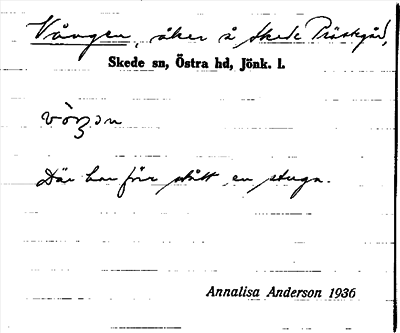 Vången, åker å Skede Prästgård,
Skede sn, Östra hd, Jönk. l.
Där har förr stått en stuga.
Annalisa Anderson 1936